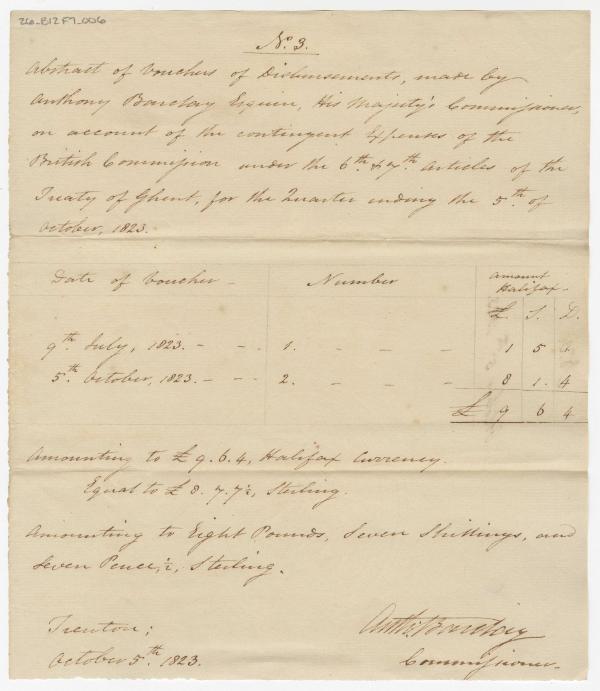 26-B12F7-006
No. 3.
Abstract of Vouchers of Disbursements, made by
Anthony Barclay Esquire, His Majesty's Commissioner,
on account of the contingent Expenses of the
British Commission under the 6th & 7th Articles of the
Treaty of Ghent, for the Quarter ending the 5th of
October, 1823.
Date of Voucher Number Amount Halifax.
£. S. D.
9th July, 1823. 1. 1 5
5th October, 1823. 2. 8 1. 4
£ 9 6 4
Amounting to £ 9.6.4, Halifax Currency.
Equal to £ 8.7.7½, Sterling.
Amounting to Eight Pounds, Seven Shillings, and
Seven Pence ½, Sterling.
Trenton;
October 5th 1823.
Anth: Barclay
Commissioner.